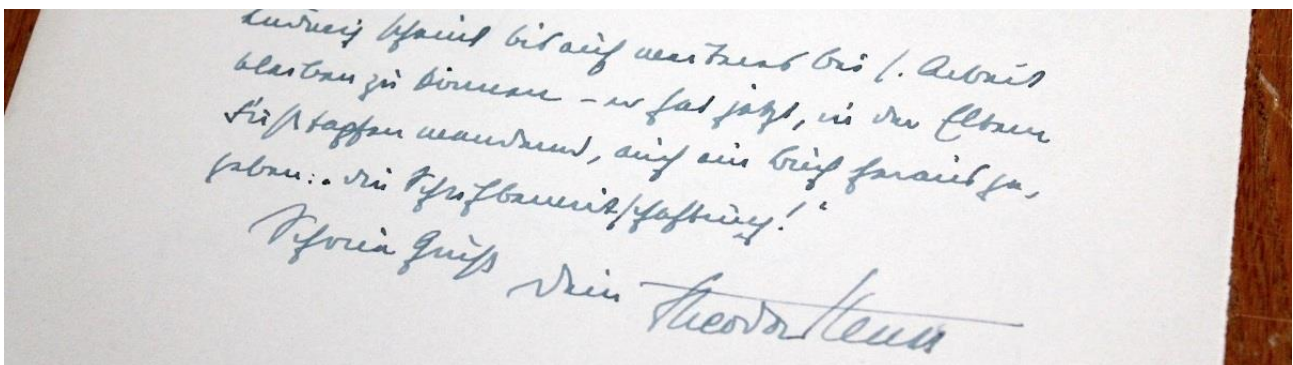 Ludwig scheint bis auf weiteres bei s. Arbeit
bleiben zu können – er hat jetzt, in der Eltern
Fußtapfen wandernd, auch ein Buch herausge-
geben: „Die Schafbewirtschaftung!“
Schöne Grüße Dein Theodor Heuss